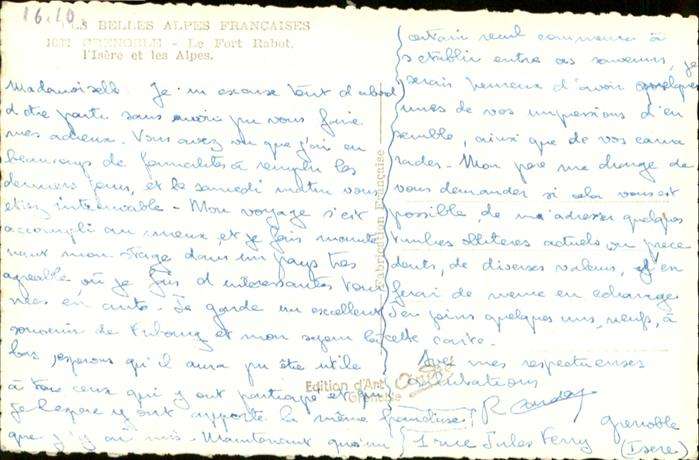 16.10
LES BELLES ALPES FRANÇAISES
GRENOBLE - Le Fort Rabot.
l'Isère et les Alpes.
Mademoiselle. Je m'excuse tout d'abord
d'être parti sans avoir pu vous faire
mes adieux. Vous avez vu que j'ai eu
beaucoup de formalités à remplir les
derniers jours, et le samedi matin vous
étiez introuvable - Mon voyage s'est
accompli au mieux, et je fais mainte
nant mon stage dans un pays très
agréable où je fais d'intéressantes tour
nées en auto. Je garde un excellent
souvenir de Fribourg et mon séjour là
bas, espérons qu'il aura pu être utile
à tous ceux qui y ont participé et qui
je l'espère y ont apporté la même franchise
que j'y ai mis. Maintenant qu'un
certain recul commence à
s'établir entre ces souvenirs, je
serais heureux d'avoir quelques
unes de vos impressions d'en
semble, ainsi que de vos cama
rades - Mon père me charge de
vous demander si cela vous est
possible de m'adresser quelques
timbres oblitérés actuels ou précé
dents, de diverses valeurs, et j'en
ferai de même en échange
J'en joins quelques uns, neufs, à
cette carte.
Avec mes respectueuses
salutations
1 rue Jules Ferry
Grenoble
(Isère)
Fabrication Française
Edition d'Art
Grenoble